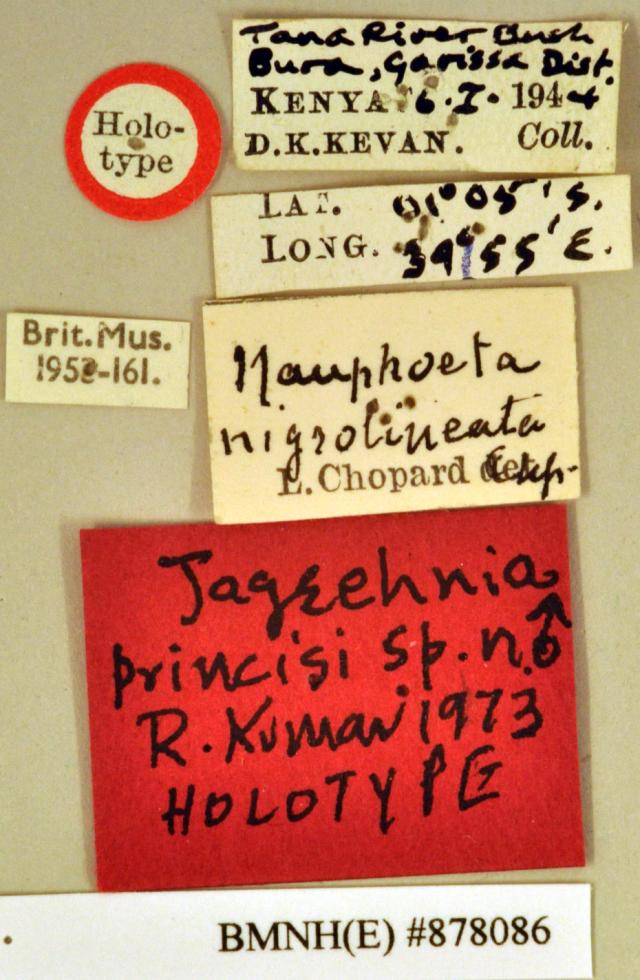 Tana River Bush
Bura, Garissa Dist.
KENYA 6.I.1944
D.K.KEVAN. Coll.
Holo-
type
LAT. 01°05's.
LONG. 39°55'E.
Brit.Mus.
1952-161.
Nauphoeta
nigrolineata
L.Chopard det.
Jagrehnia
princisi sp.n. ♂
R.Kumar 1973
HOLOTYPE
BMNH(E) #878086